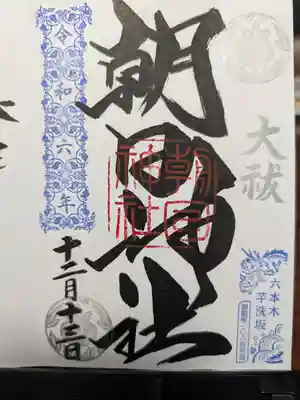 大祓
六本木
芋洗坂
朝日神社
朝日
神社
令和六年
十二月十三日